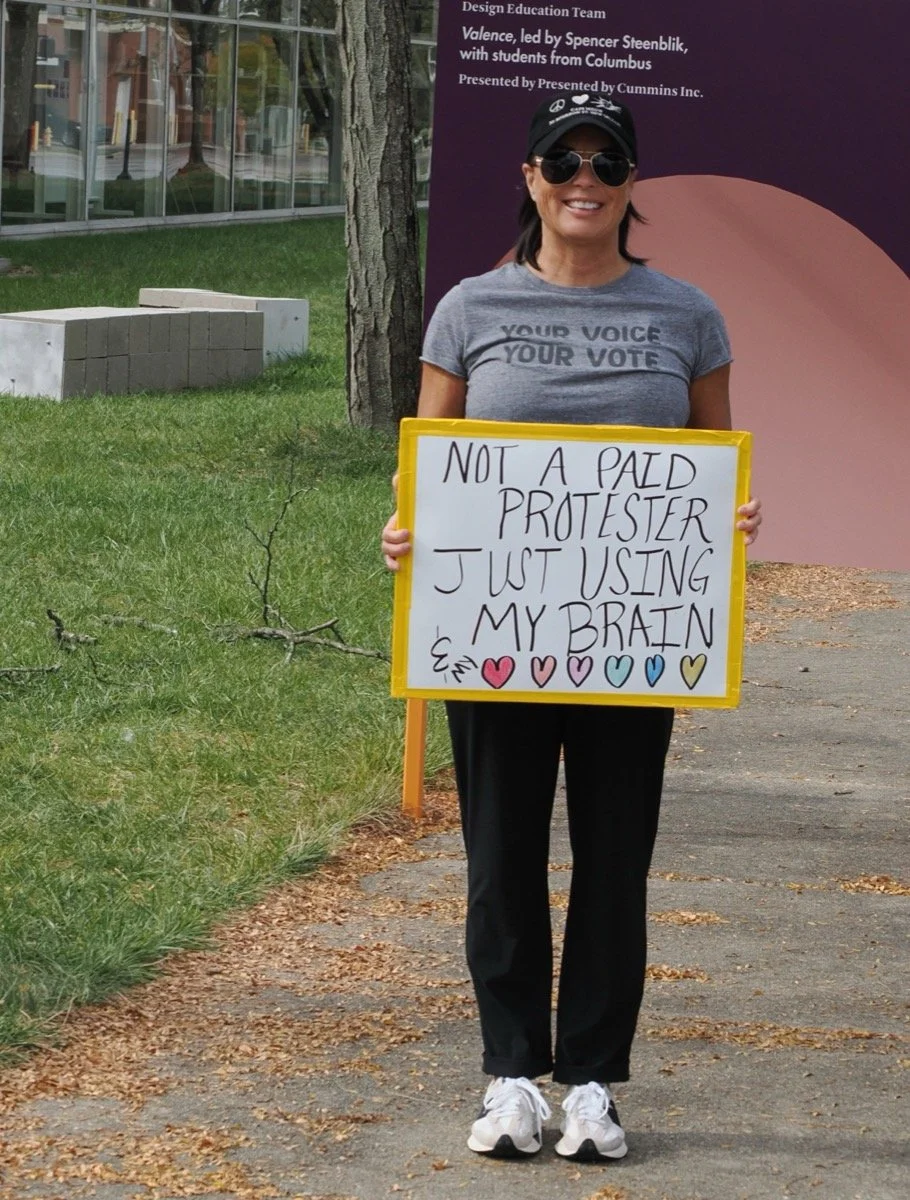 Design Education Team
Valence, led by Spencer Steenblik,
with students from Columbus
Presented by Presented by Cummins Inc.
YOUR VOICE
YOUR VOTE
NOT A PAID
PROTESTER
JUST USING
MY BRAIN
&